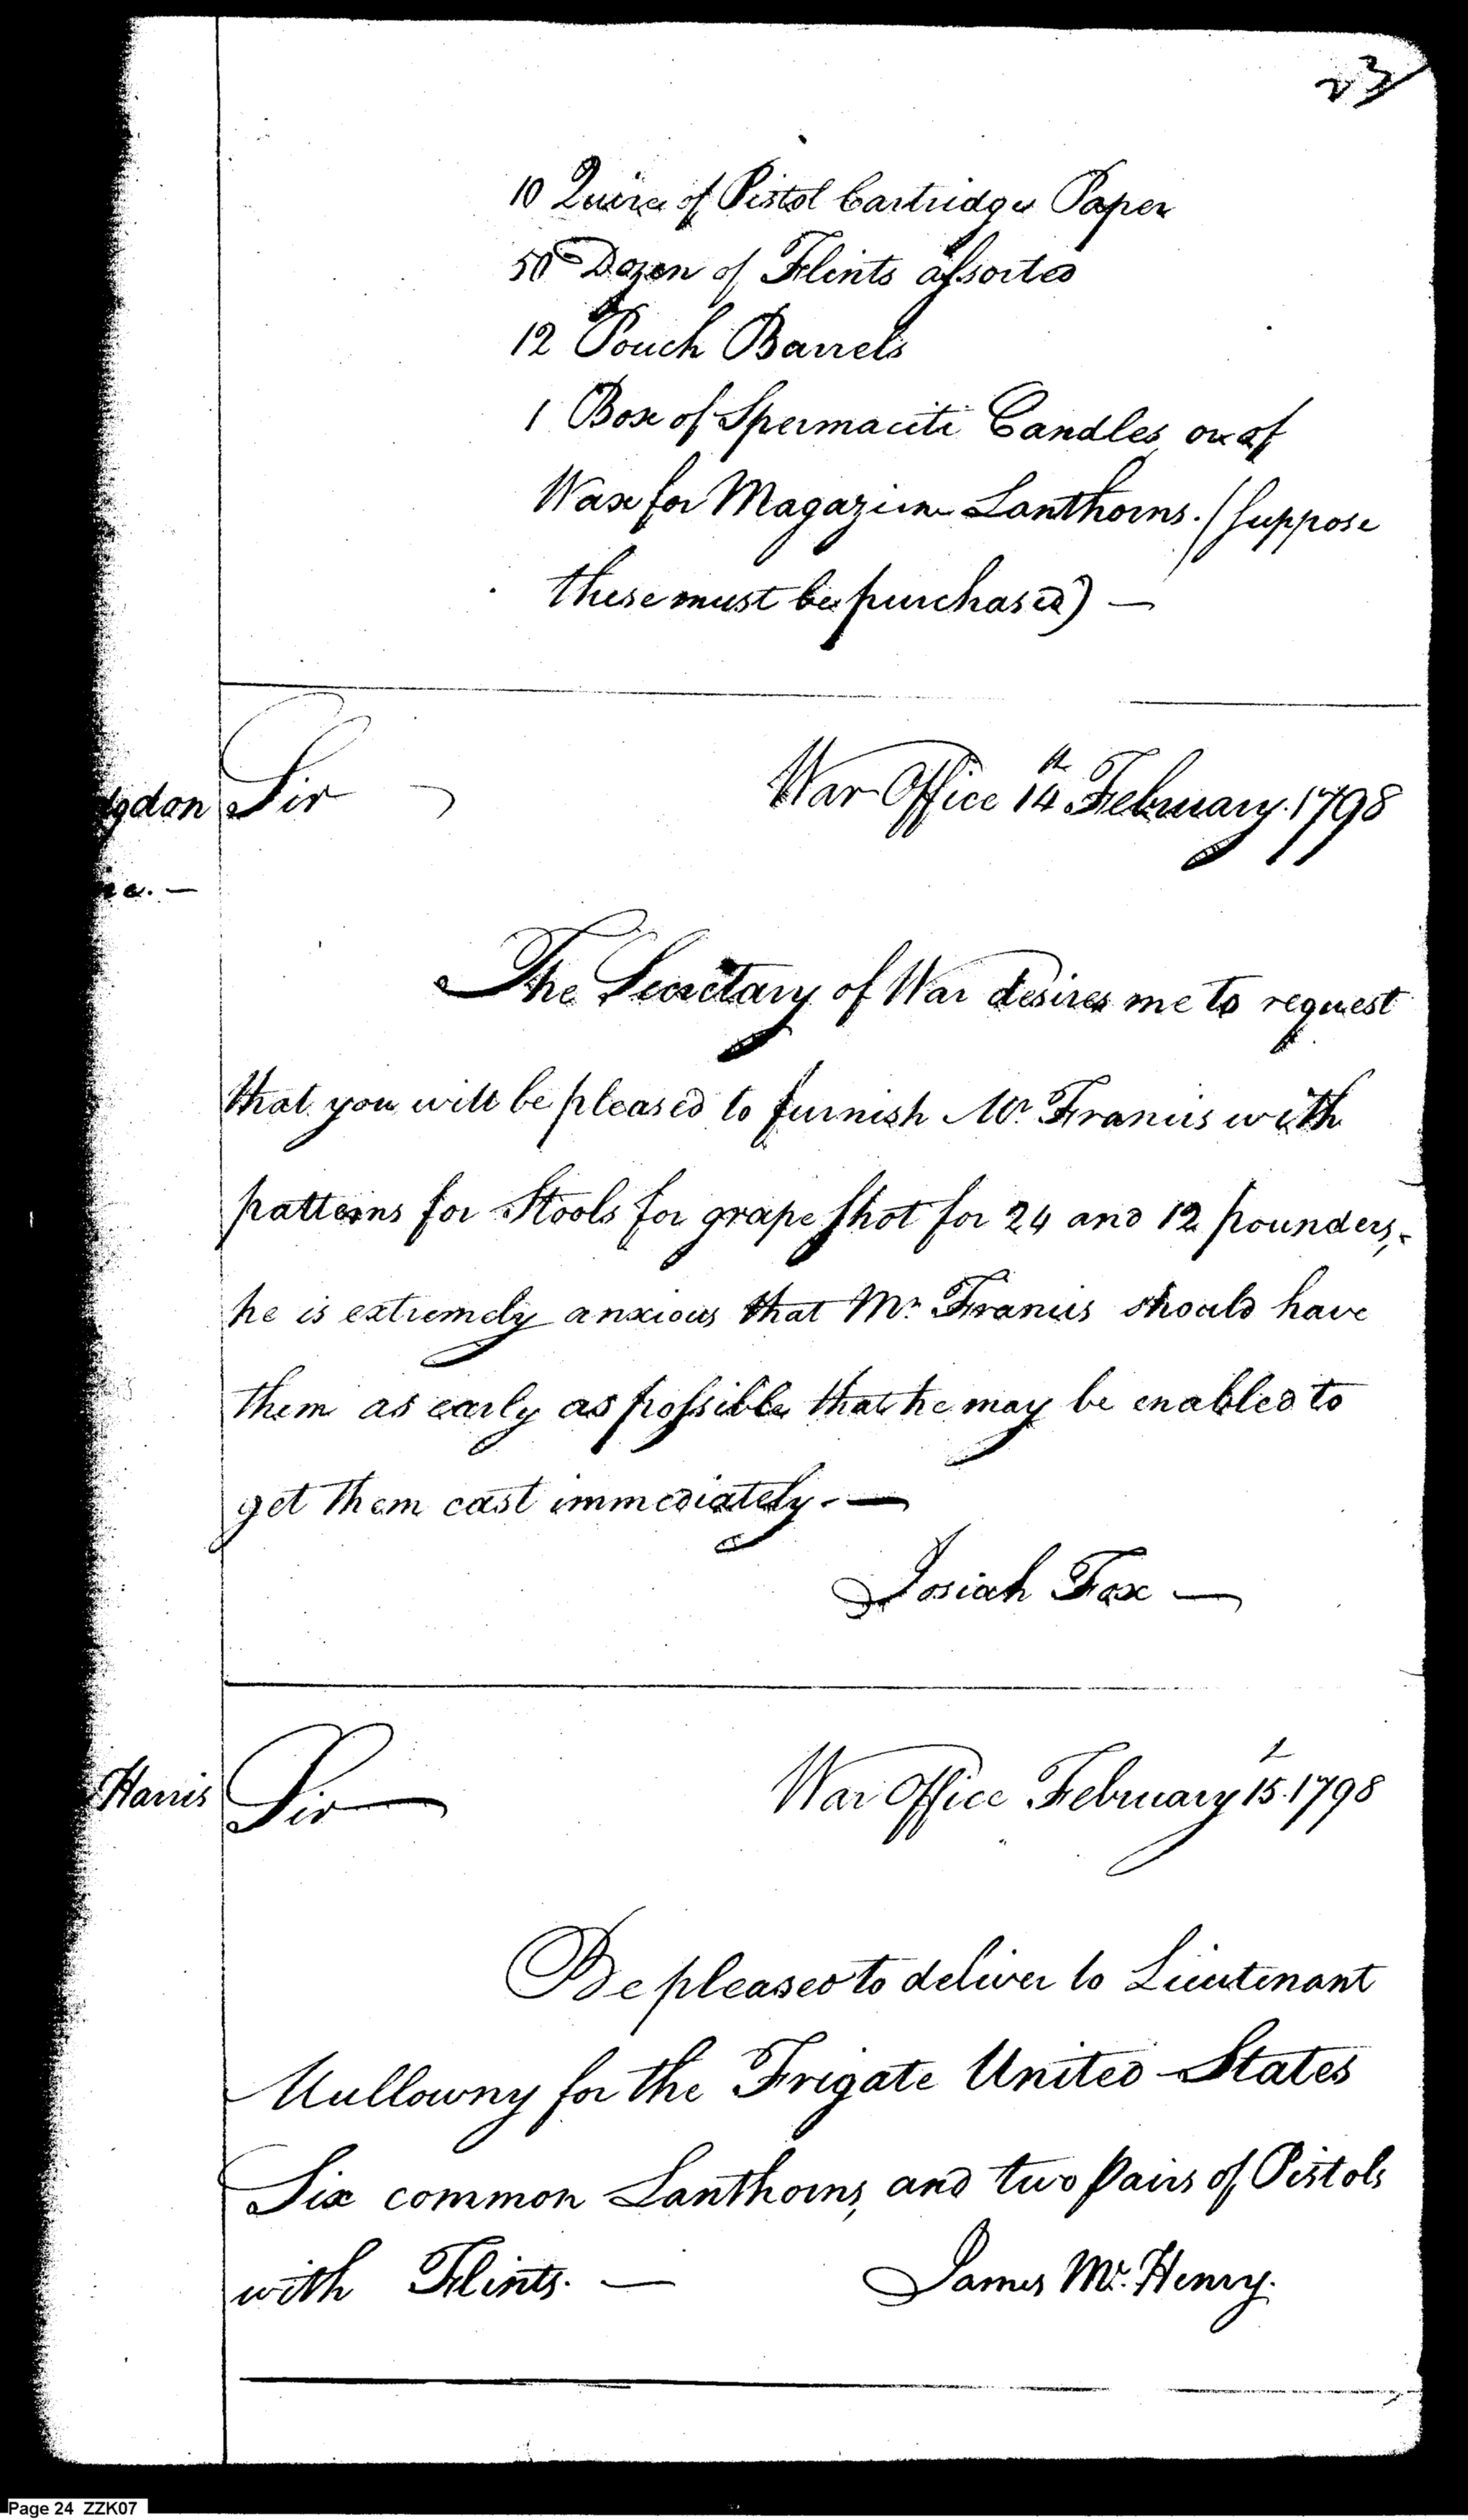 23
10 Quire of Pistol Cartridge Paper
50 Dozen of Flints assorted
12 Pouch Barrels
1 Box of Spermaciti Candles or of
Wax for Magazine Lanthorns. (suppose
these must be purchased) —
gdon Sir War Office 14th February. 1798
—
The Secretary of War desires me to request
that you will be pleased to furnish Mr. Francis with
patterns for Stools for grape shot for 24 and 12 pounders,
he is extremely anxious that Mr. Francis should have
them as early as possible that he may be enabled to
get them cast immediately. —
Josiah Fox —
Harris Sir War Office February 15. 1798
Be pleased to deliver to Lieutenant
Mullowny for the Frigate United States
Six common Lanthorns, and two pairs of Pistols
with Flints. — James Mc. Henry.
Page 24 ZZK07